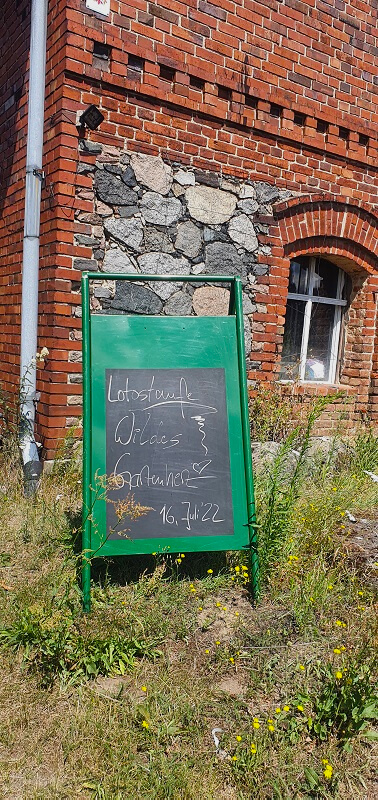 Lotostaufe
Wilács
Gartenherz
16. Juli '22